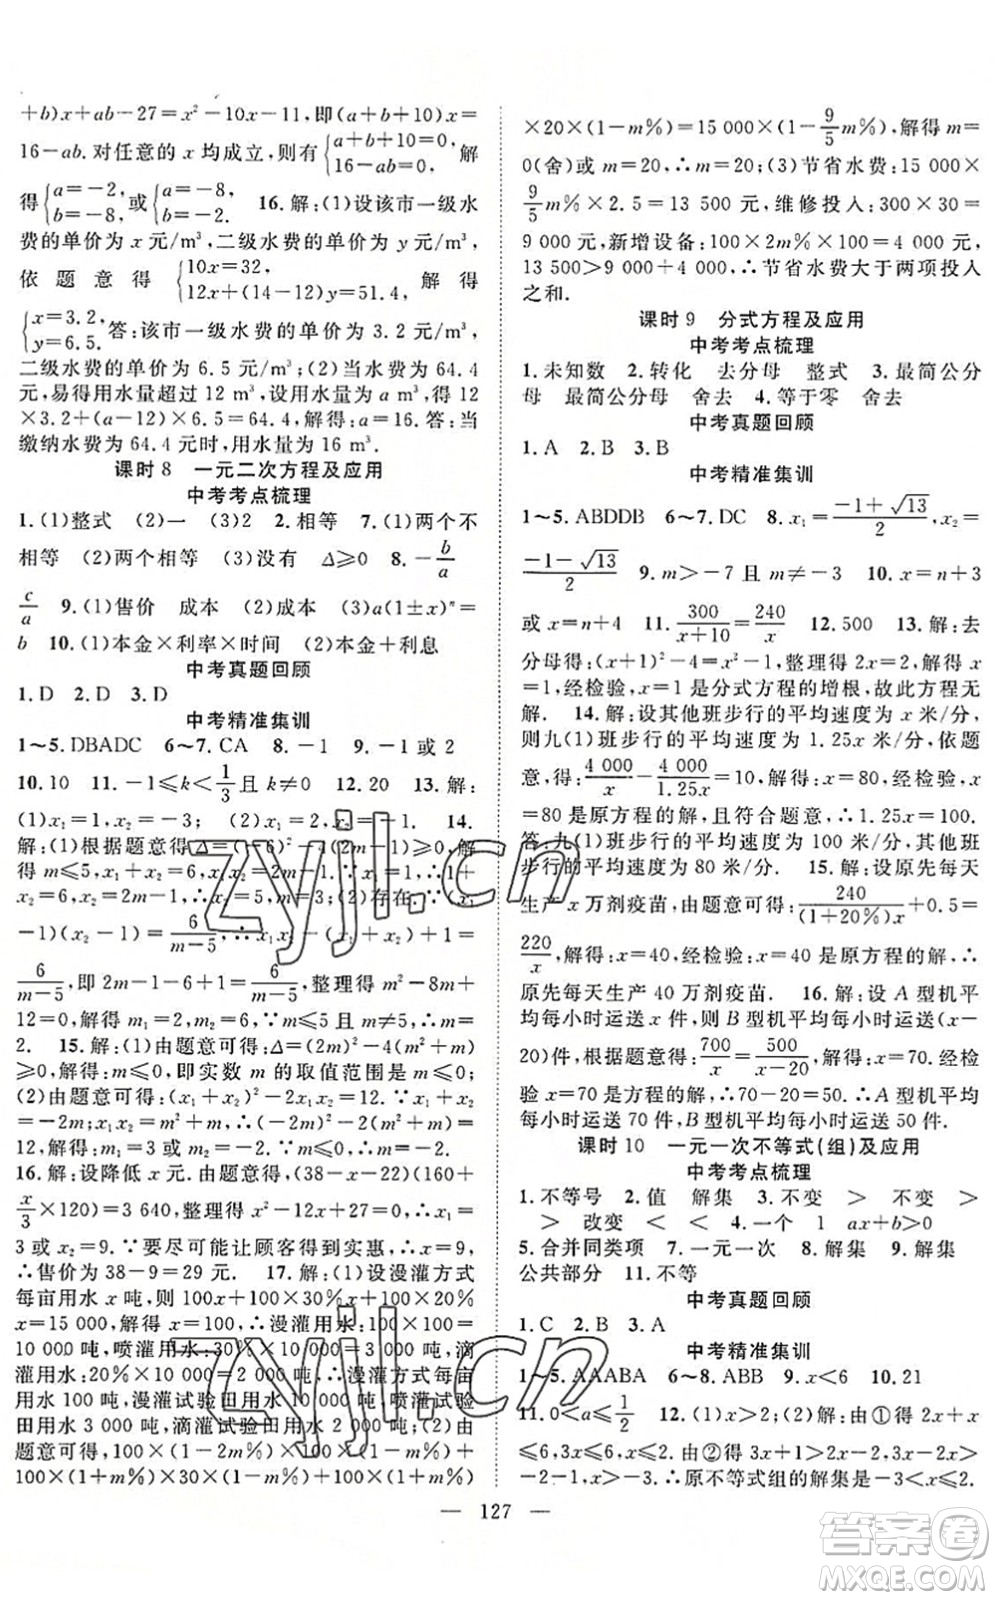 +b)x+ab-27=x²-10x-11,即(a+b+10)x=
16-ab.对任意的 x 均成立,则有{a+b+10=0, 16-ab=0, 解
得{a=-2, b=-8, 或{a=-8, b=-2. 16.解:(1)设该市一级水
费的单价为 x 元/m³,二级水费的单价为 y 元/m³,
依题意得{10x=32, 12x+(14-12)y=51.4, 解得
{x=3.2, y=6.5. 答:该市一级水费的单价为 3.2 元/m³,
二级水费的单价为 6.5 元/m³;(2)当水费为 64.4
元,易得用水量超过 12 m³,设用水量为 a m³,得 12
×3.2+(a-12)×6.5=64.4,解得:a=16.答:当
缴纳水费为 64.4 元时,用水量为 16 m³.
课时 8 一元二次方程及应用
中考考点梳理
1.(1)整式 (2)一 (3)2 2.相等 7.(1)两个不
相等 (2)两个相等 (3)没有 Δ≥0 8.-b/a
c/a 9.(1)售价 成本 (2)成本 (3)a(1±x)ⁿ=
b 10.(1)本金×利率×时间 (2)本金+利息
中考真题回顾
1.D 2.D 3.D
中考精准集训
1~5.DBADC 6~7.CA 8.-1 9.-1 或 2
10.10 11.-1≤k<1/3且 k≠0 12.20 13.解:
(1)x₁=1,x₂=-3; (2)x₁=2,x₂=-1. 14.
解:(1)根据题意得 Δ=(-6)²-4(2m-1)≥0,解
得 m≤5,x₁+x₂=6,x₁x₂=2m-1;(2)x₁=1,1+
x₂=6,x₁x₂=2m-1,∴x₂=5,m=3;(3)存在.∵(x₁
-1)(x₂-1)=6/(m-5),∴x₁x₂-(x₁+x₂)+1=
6/(m-5),即 2m-1-6+1=6/(m-5),整理得 m²-8m+
12=0,解得 m₁=2,m₂=6,∵m≤5 且 m≠5,∴m=
2. 15.解:(1)由题意可得:Δ=(2m)²-4(m²+
m)≥0,解得 m≤0,即实数 m 的取值范围是 m≤0;
(2)由题意可得:(x₁+x₂)²-2x₁x₂=12,∵x₁+x₂
=-2m;x₁x₂=m²+m,∴(-2m)²-2(m²+m)=
12,解得:m=3 或 m₂=-2.∵m≤0,∴m=-2.
16.解:设降低 x 元.由题意可得:(38-x-22)(160+
x/3×120)=3 640,整理得 x²-12x+27=0,∴x₁=
3 或 x₂=9.∵要尽可能让顾客得到实惠,∴x=9,
∴售价为 38-9=29 元. 17.解:(1)设漫灌方式
每亩用水 x 吨,100x+100×30%x+100×20%x
=15 000,解得 x=100,∴漫灌用水:100×100=
10 000 吨,喷灌用水:30%×10 000=3 000 吨,滴
灌用水:20%×10 000=2 000 吨,∴漫灌方式每亩
用水 100 吨,漫灌试验田用水 10 000 吨,喷灌试验
田用水 3 000 吨,滴灌试验田用水 2 000 吨;(2)由
题意可得:100×(1-2m%)×100×(1-m%)+
100×(1+m%)×30×(1-m%)+100×(1+m%)
×20×(1-m%)=15 000×(1-9/5m%),解得 m=
0(舍)或 m=20,∴m=20;(3)节省水费:15 000×
9/5m%×2.5=13 500 元,维修投入:300×30=
9 000 元,新增设备:100×2m%×100=4 000 元,
13 500>9 000+4 000,∴节省水费大于两项投入
之和.
课时 9 分式方程及应用
中考考点梳理
1.未知数 2.转化 去分母 整式 3.最简公分
母 最简公分母 舍去 4.等于零 舍去
中考真题回顾
1.A 2.B 3.B
中考精准集训
1~5.ABDDB 6~7.DC 8.x₁=(-1+√13)/2,x₂=
(-1-√13)/2 9.m>-7 且 m≠-3 10.x=n+3
或 x=n+4 11.300/(x+10)=240/x 12.500 13.解:去
分母得:(x+1)²-4=x²-1,整理得 2x=2,解得 x
=1,经检验,x=1 是分式方程的增根,故此方程无
解. 14.解:设其他班步行的平均速度为 x 米/分,
则九(1)班步行的平均速度为 1.25x 米/分,依题
意,得:4 000/x-4 000/1.25x=10,解得:x=80,经检验,x
=80 是原方程的解,且符合题意,∴1.25x=100.
答:九(1)班步行的平均速度为 100 米/分,其他班
步行的平均速度为 80 米/分. 15.解:设原先每天
生产 x 万剂疫苗,由题意可得:240/(1+20%)x+0.5=
220/x,解得:x=40,经检验:x=40 是原方程的解,∴
原先每天生产 40 万剂疫苗. 16.解:设 A 型机平
均每小时运送 x 件,则 B 型机平均每小时运送(x-
20)件,根据题意得:700/x=500/(x-20),解得:x=70,经检
验 x=70 是方程的解,∴70-20=50,∴A 型机平均
每小时运送 70 件,B 型机平均每小时运送 50 件.
课时 10 一元一次不等式(组)及应用
中考考点梳理
1.不等号 2.值 解集 3.不变 > 不变 >
> 改变 < < 4.一个 1 ax+b>0
5.合并同类项 7.一元一次 8.解集 9.解集
公共部分 11.不等
中考真题回顾
1.C 2.B 3.A
中考精准集训
1~5.AAABA 6~8.ABB 9.x<6 10.21
11.0<a≤1/2 12.(1)x>2;(2)解:由①得 2x+x
≤6,3x≤6,x≤2.由②得 3x+1>x-3,2x>-4,x>
-2-1,x>-3.∴原不等式组的解集是-3<x≤2.
— 127 —
zyjl.cn
zyjl.cn
答案圈
MXQE.COM